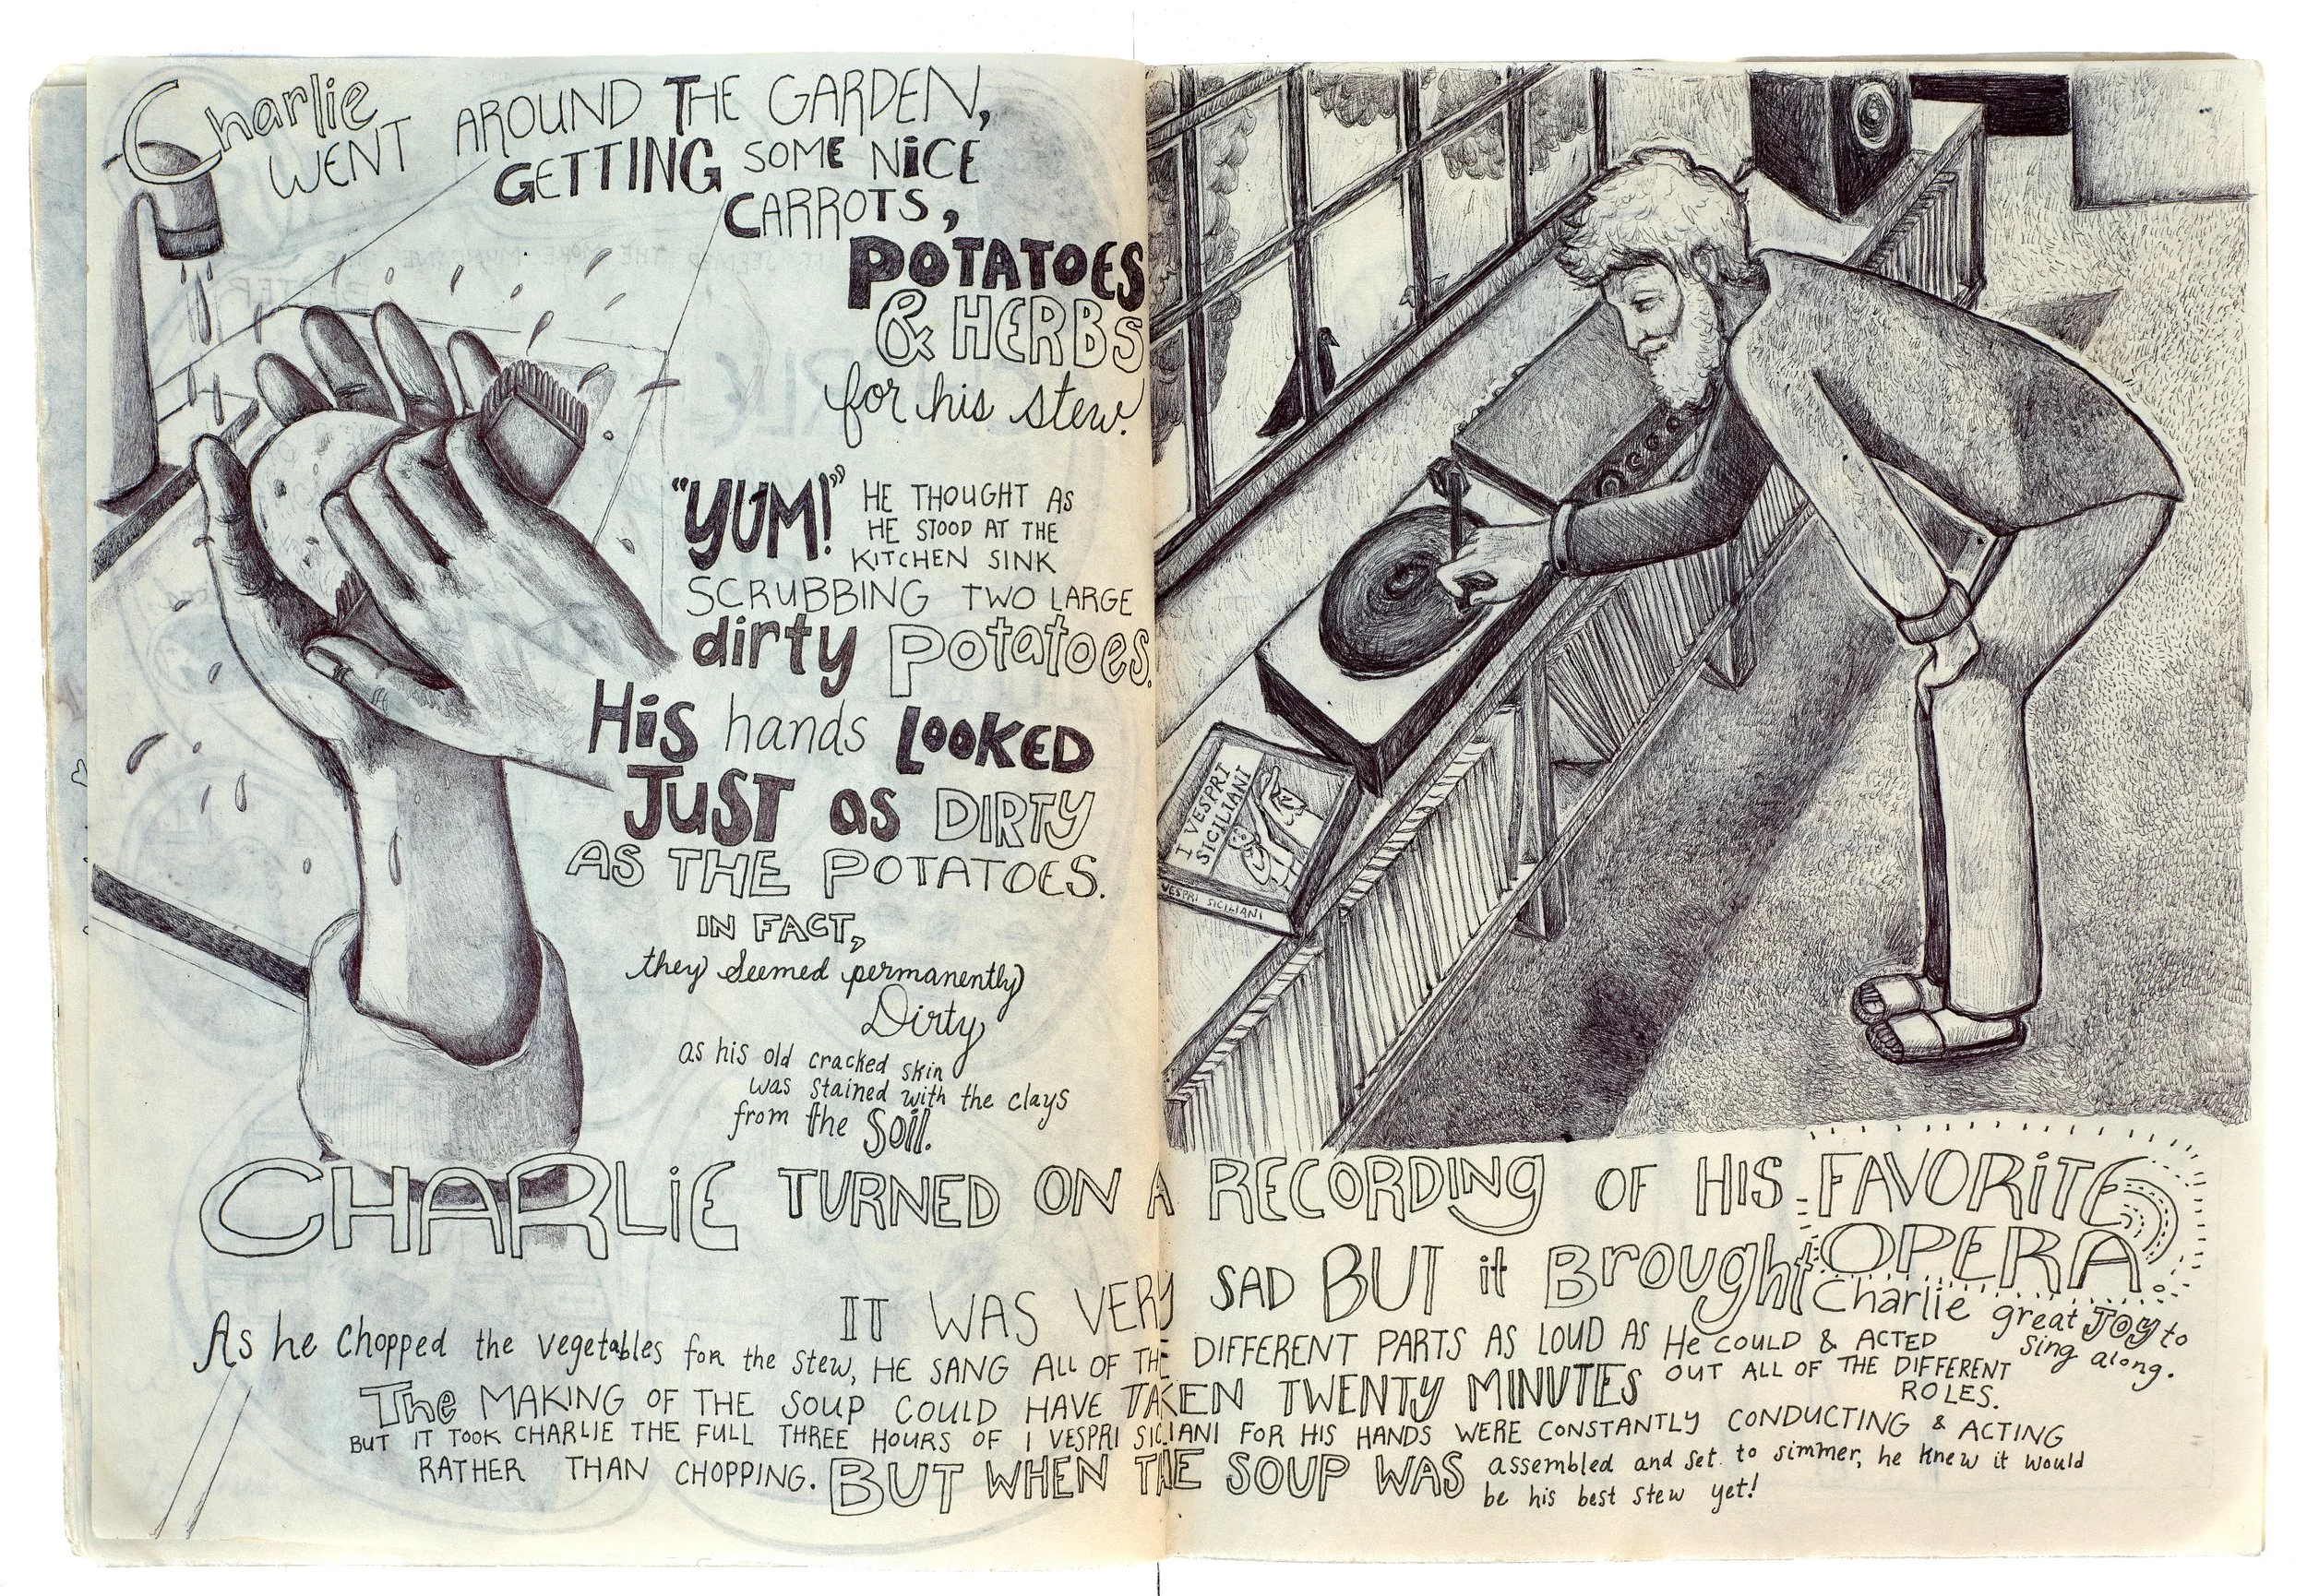 Charlie
WENT AROUND THE GARDEN,
GETTING SOME NiCE
CARROTS,
POTATOES
& HERBS
for his stew.
"YUM!" HE THOUGHT AS
HE STOOD AT THE
KITCHEN SINK
SCRUBBING TWO LARGE
dirty Potatoes.
His hands LOOKED
JUST as DIRTY
AS THE POTATOES.
IN FACT,
they seemed permanently
Dirty
as his old cracked skin
was stained with the clays
from the Soil.
I VESPRI
SICILIANI
VESPRI SICILIANI
CHARLiE TURNED ON A RECORDING OF HIS FAVORITE
OPERA.
IT WAS VERY SAD BUT it Brought Charlie great JOY to
sing along.
As he chopped the vegetables for the stew, HE SANG ALL OF THE DIFFERENT PARTS AS LOUD AS HE COULD & ACTED
OUT ALL OF THE DIFFERENT
ROLES.
The MAKING OF THE SOUP COULD HAVE TAKEN TWENTY MINUTES
BUT IT TOOK CHARLIE THE FULL THREE HOURS OF I VESPRI SICILIANI FOR HIS HANDS WERE CONSTANTLY CONDUCTING & ACTING
RATHER THAN CHOPPING. BUT WHEN THE SOUP WAS assembled and set to simmer, he knew it would
be his best stew yet!